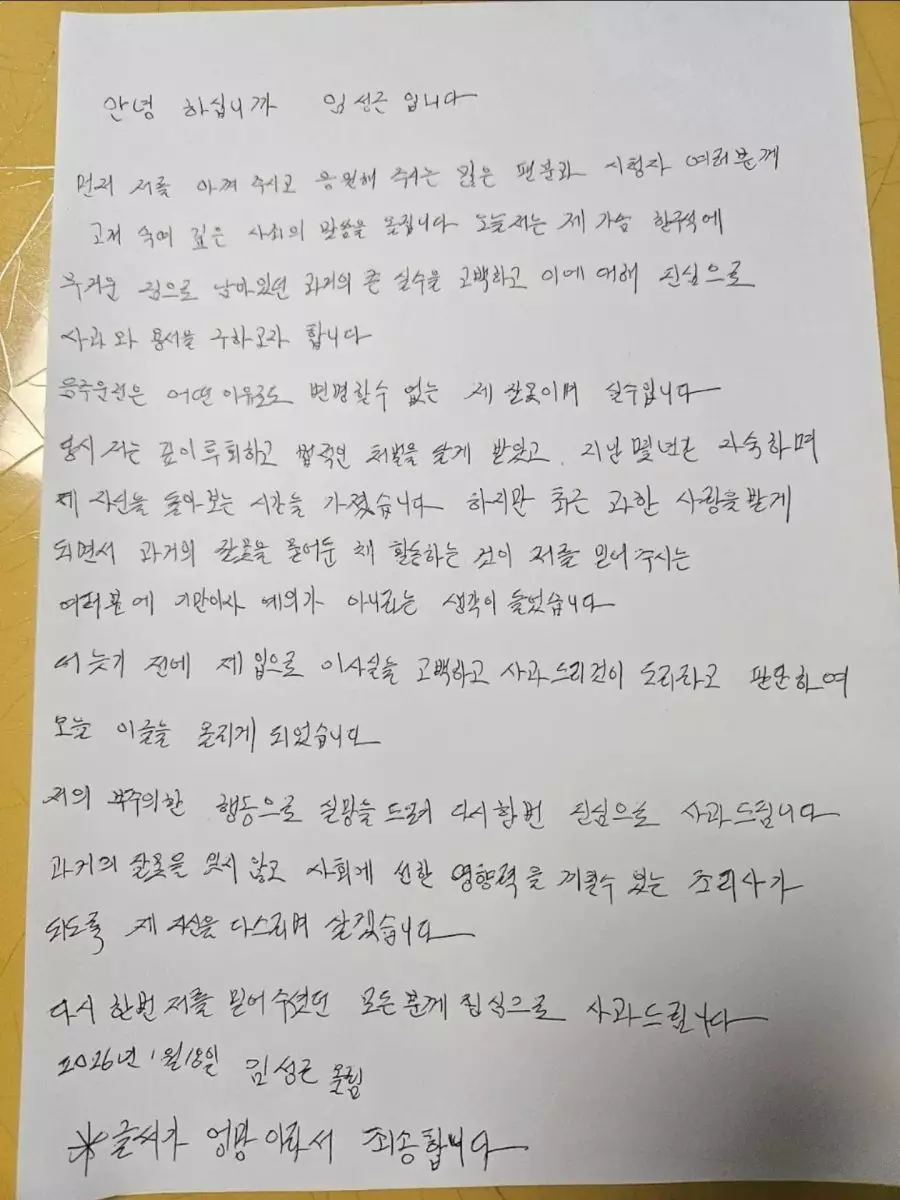 안녕 하십니까 임성근 입니다
먼저 저를 아껴 주시고 응원해 주시는 많은 팬분과 시청자 여러분께
고개 숙여 깊은 사죄의 말씀을 올립니다 오늘 저는 제 가슴 한구석에
무거운 짐으로 남아있던 과거의 큰 실수를 고백하고 이에 대해 진심으로
사과와 용서를 구하고자 합니다
음주운전은 어떤 이유로도 변명할수 없는 제 잘못이며 실수입니다
당시 저는 깊이 후회하고 법적인 처벌을 달게 받았고, 지난 몇년간 자숙하며
제 자신을 돌아보는 시간을 가졌습니다 하지만 최근 과한 사랑을 받게
되면서 과거의 잘못을 묻어둔 채 활동하는 것이 저를 믿어 주시는
여러분에 기만이자 예의가 아니라는 생각이 들었습니다
더 늦기 전에 제 입으로 이사실을 고백하고 사과드리것이 도리라고 판단하여
오늘 이글을 올리게 되었습니다
저의 부주의한 행동으로 실망을 드려 다시한번 진심으로 사과드립니다
과거의 잘못을 잊지 않고 사회게 선한 영향력을 끼칠수 있는 조리사가
되도록 제 자신을 다스리며 살겠습니다
다시 한번 저를 믿어 주셨던 모든분께 진심으로 사과드립니다
2026년 1월 18일 임성근 올림
※글씨가 엉망이라서 죄송합니다